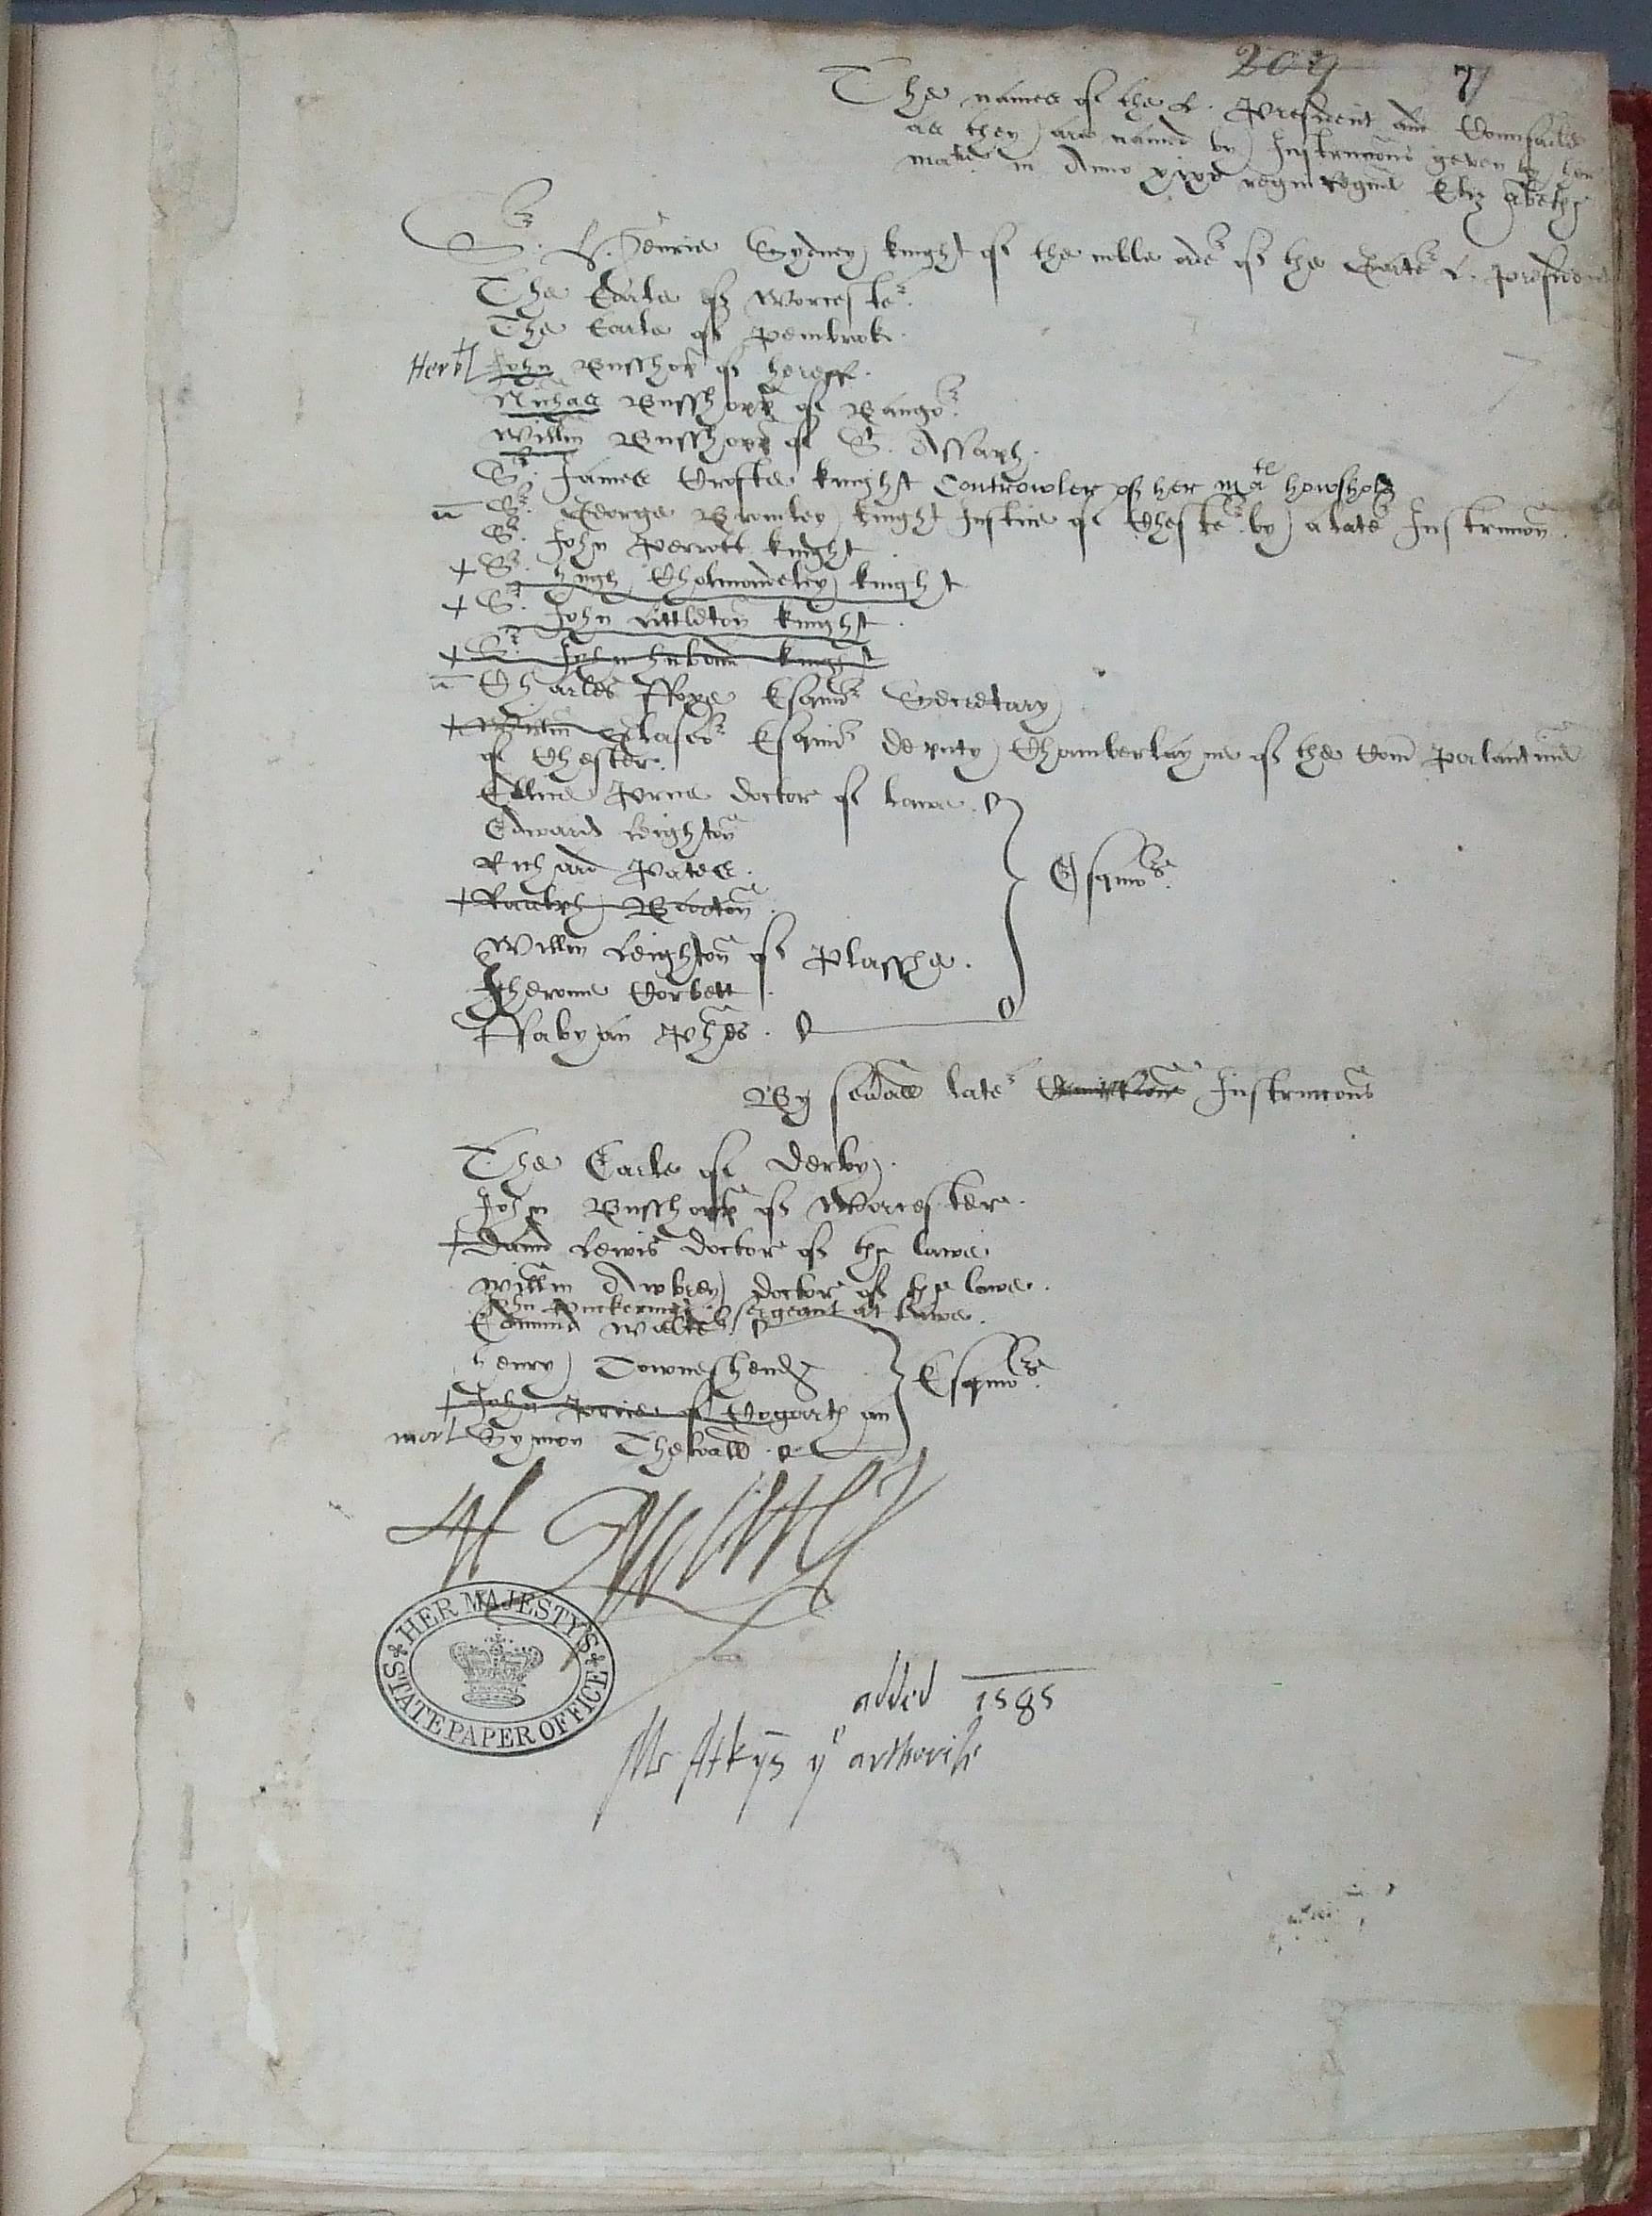 204 77
The names of the L. President and Counsaile
as they are named by Instruccons geven by her
matie in Anno xixo regni Regine Elizabeth
Sr. Henrie Sydney knight of the noble order of the Garter L. president
The Earle of Worcester.
The Earle of Pembrok.
Herbt John Busshop of hereff.
Nichas Busshopp of Bangor.
Willm Busshopp of S. Assaph.
Sr. James Crofte knight Controwler of her Matie howshold
Sr. George Bromley knight Justice of Chester by a later Instruccon.
Sr. John Perrott knight.
+ Sr. hugh Cholmondeley knight
+ Sr. John Littleton knight.
+ Sr. John huband knight
Charles Foxe Esquier Secretary
+ Willm Glaseor Esquier deputy Chamberlayne of the Com Palantine
of Chester.
Ellice Price doctor of lawe.
Edward Leighton
Richard Pates.
+ Raulph Barton.
Esquiors.
Willm Leighton of Plasshe.
Jherome Corbett.
Fabyan Phes.
By severall later Instruccons
The Earle of Derby.
John Busshopp of Worcester.
+ David Lewis doctor of the lawe
Willm Awbrey doctor of the lawe.
John Puckering sergeant at lawe.
Edmund Walter
henry Towneshend
Esquiors.
+ John Price of Gogarthan
mort Symon Thelwall.
H Sydney
HER MAJESTY'S
STATE PAPER OFFICE
added 1585
Mr Atkyns